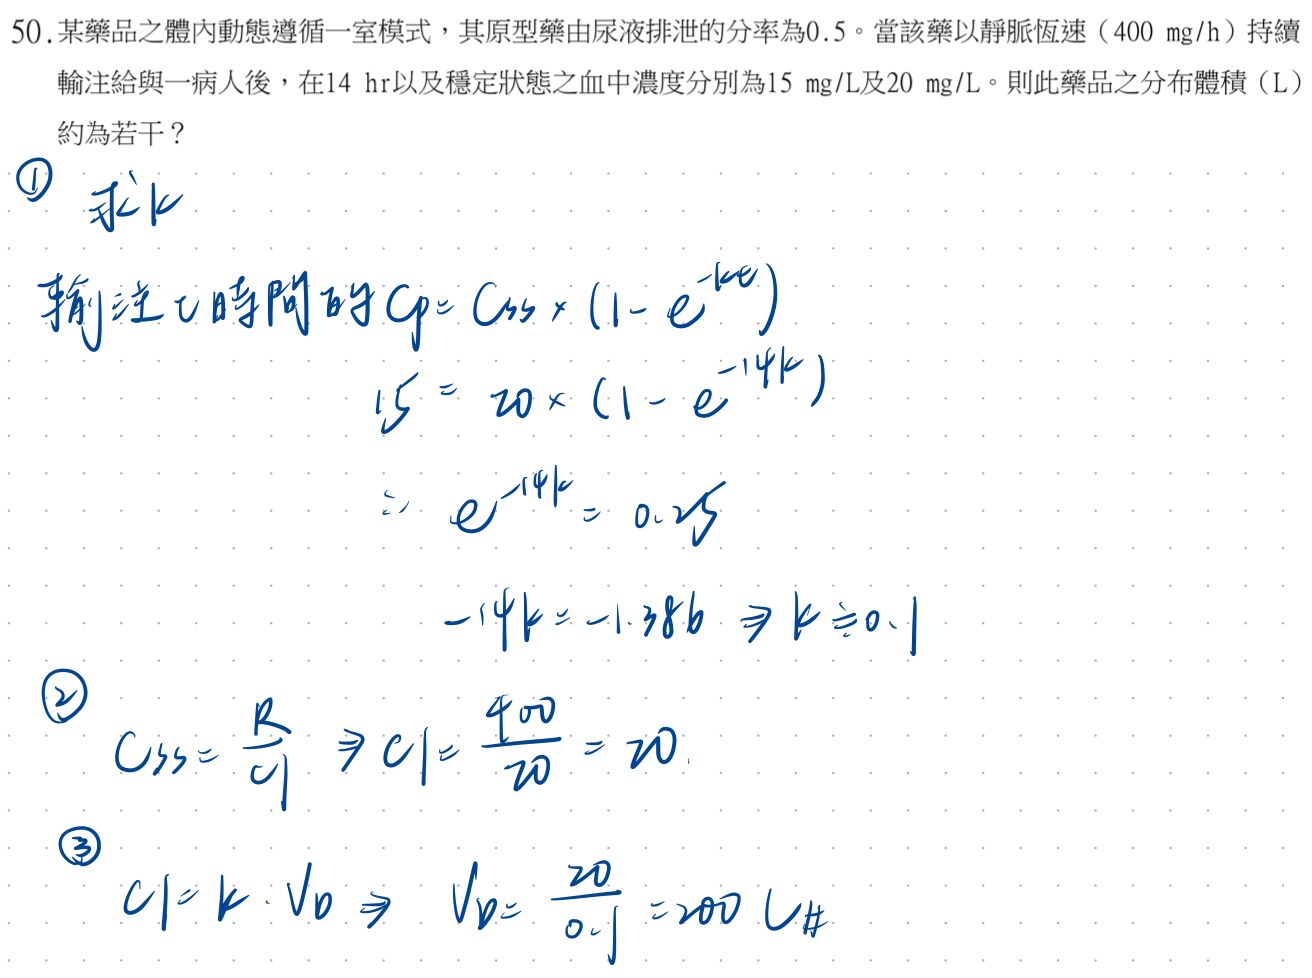 50.某藥品之體內動態遵循一室模式，其原型藥由尿液排泄的分率為0.5。當該藥以靜脈恆速（400 mg/h）持續
輸注給與一病人後，在14 hr以及穩定狀態之血中濃度分別為15 mg/L及20 mg/L。則此藥品之分布體積（L）
約為若干？
① 求k
輸注t時間的Cp = Css × (1 - e^-kt)
15 = 20 × (1 - e^-14k)
∴ e^-14k = 0.25
-14k = -1.386 ⇒ k ≒ 0.1
② Css = R/Cl ⇒ Cl = 400/20 = 20.
③ Cl = k · VD ⇒ VD = 20/0.1 = 200 L #